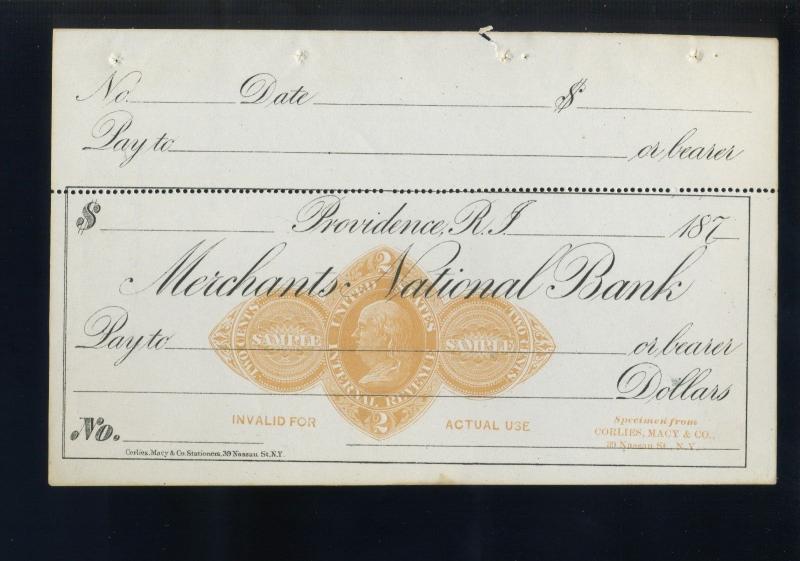 No. Date $
Pay to or bearer
$ Providence, R.I. 187
Merchants National Bank
2
UNITED STATES
TWO CENTS SAMPLE SAMPLE TWO CENTS
Pay to or bearer
INTERNAL REVENUE
Dollars
2
No. INVALID FOR ACTUAL USE
Specimen from
CORLIES, MACY & CO.,
39 Nassau St., N.Y.
Corlies, Macy & Co. Stationers, 39 Nassau St. N.Y.